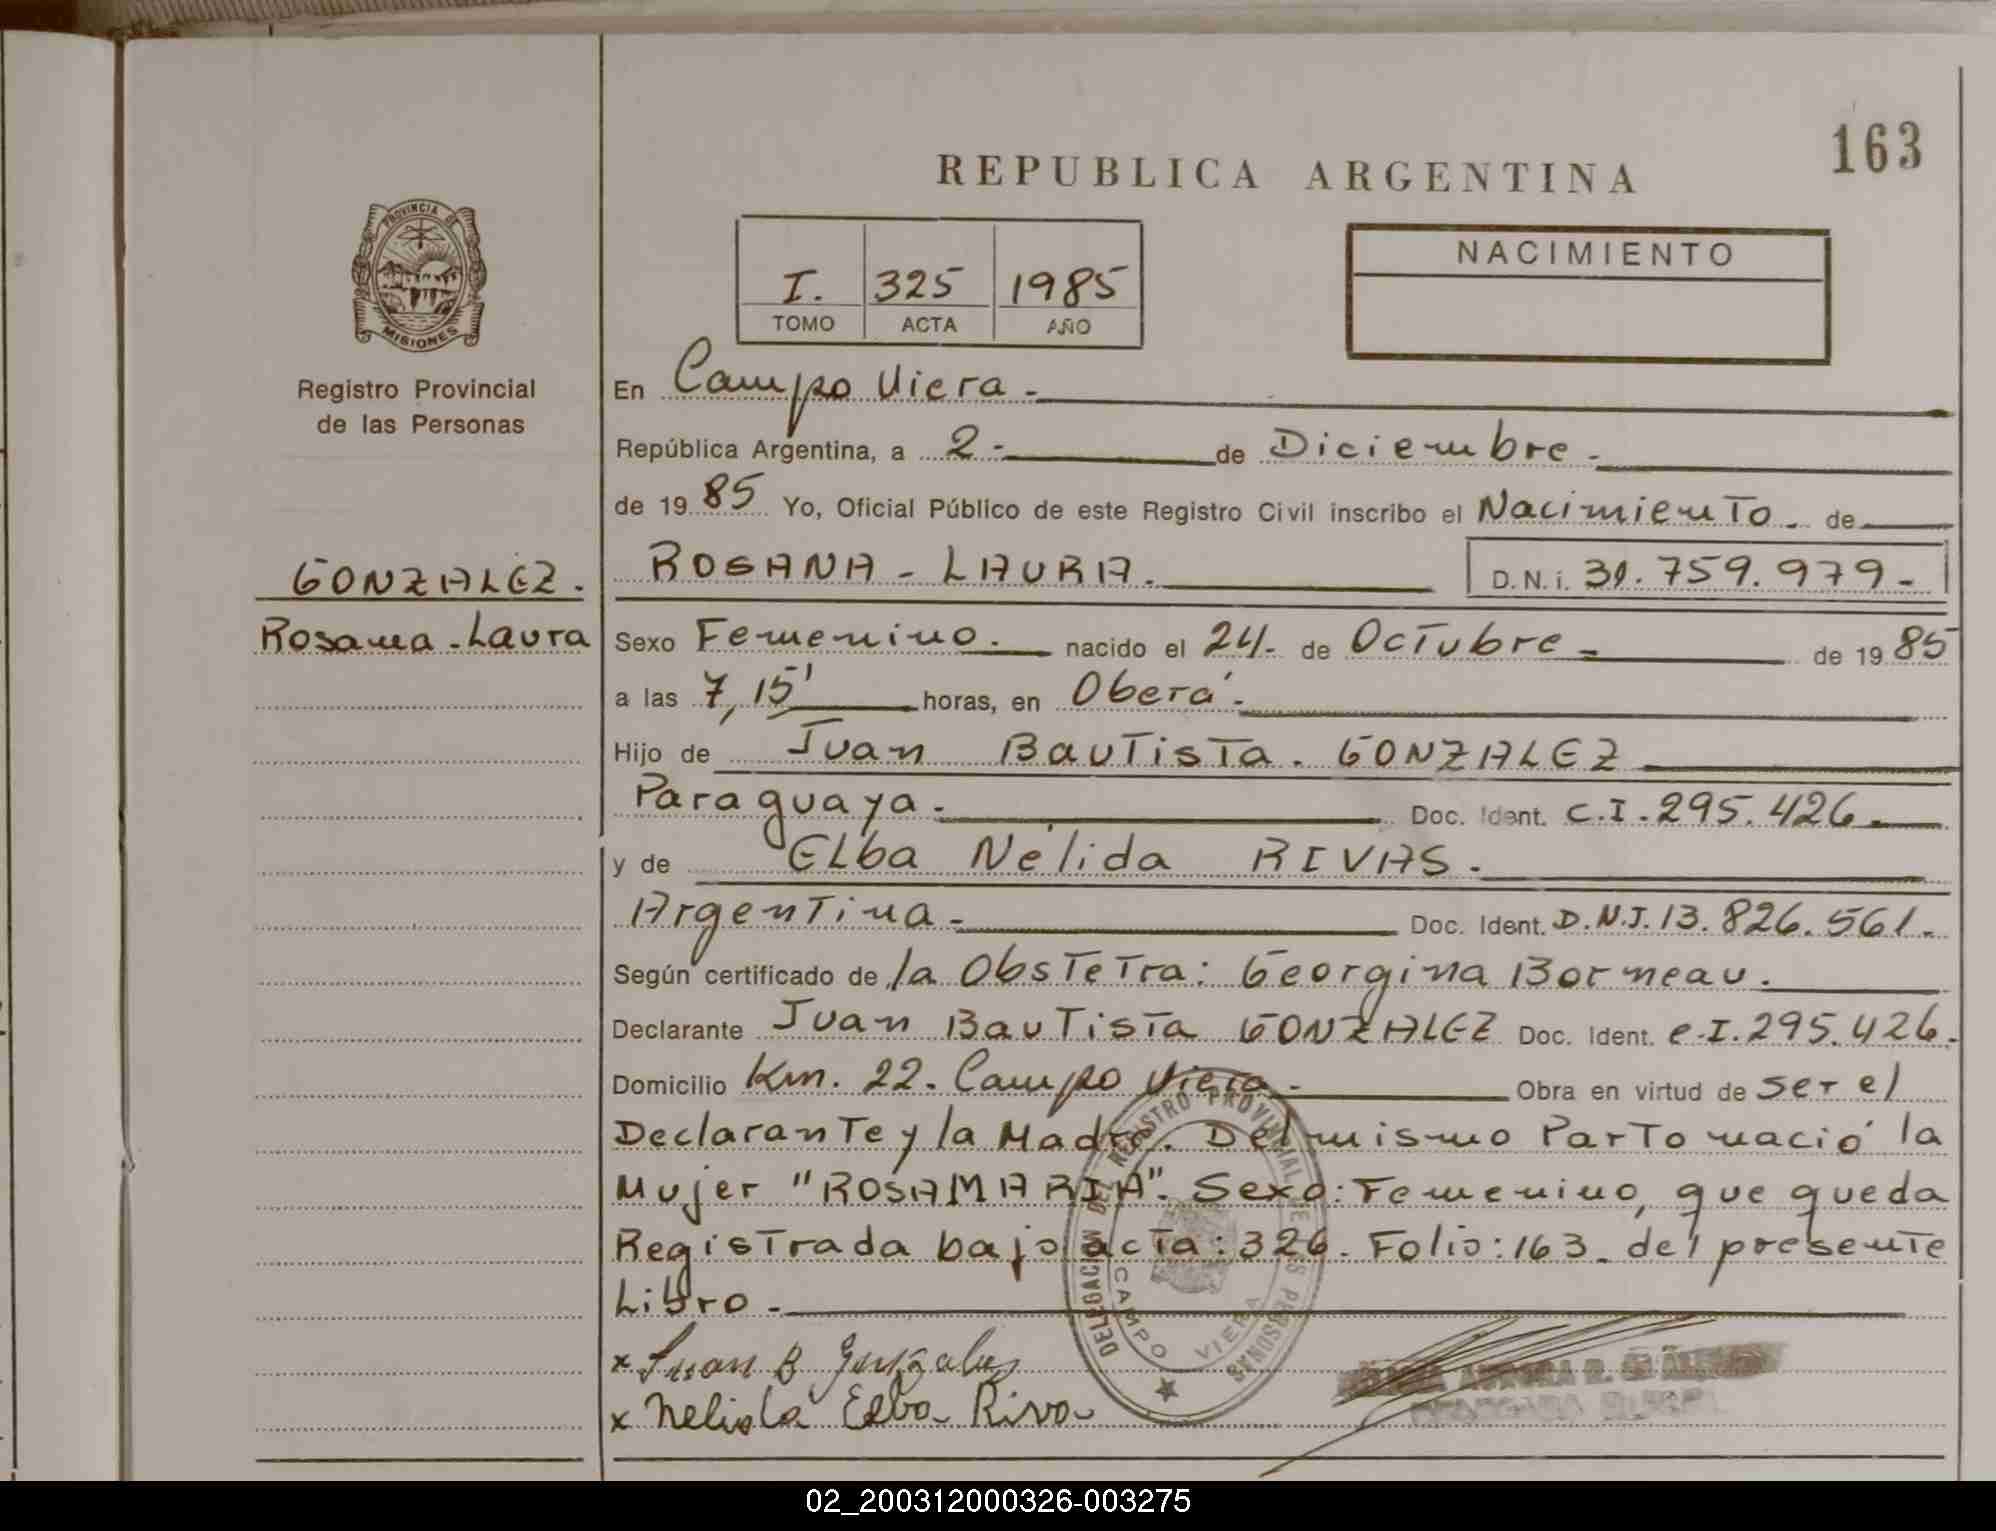 163
REPUBLICA ARGENTINA
PROVINCIA DE
MISIONES
Registro Provincial
de las Personas
I. 325 1985
TOMO ACTA AÑO
NACIMIENTO
En Campo Viera.
República Argentina, a 2- de Diciembre.
de 1985 Yo, Oficial Público de este Registro Civil inscribo el Nacimiento. de
GONZALEZ.
Rosana-Laura
ROSANA-LAURA. D.N.i. 31.759.979-
Sexo Femenino. nacido el 24. de Octubre- de 1985
a las 7,15' horas, en Oberá.
Hijo de Juan Bautista. GONZALEZ
Paraguaya. Doc. Ident. C.I.295.426.
y de ELba Nélida RIVAS.
Argentina- Doc. Ident. D.N.I.13.826.561.
Según certificado de la Obstetra: Georgina Borneau.
Declarante Juan Bautista GONZALEZ Doc. Ident. C.I.295.426.
Domicilio Km. 22. Campo Viera- Obra en virtud de ser el
Declarante y la Madre. Del mismo Parto nació la
Mujer "ROSAMARIA". Sexo: Femenino, que queda
Registrada bajo acta: 326. Folio: 163. del presente
Libro.
x Juan B Gonzalez
x Nelida Elba Riva
DELEGACION DEL REGISTRO PROVINCIAL DE LAS PERSONAS
CAMPO VIERA
AURORA R.
02_200312000326-003275